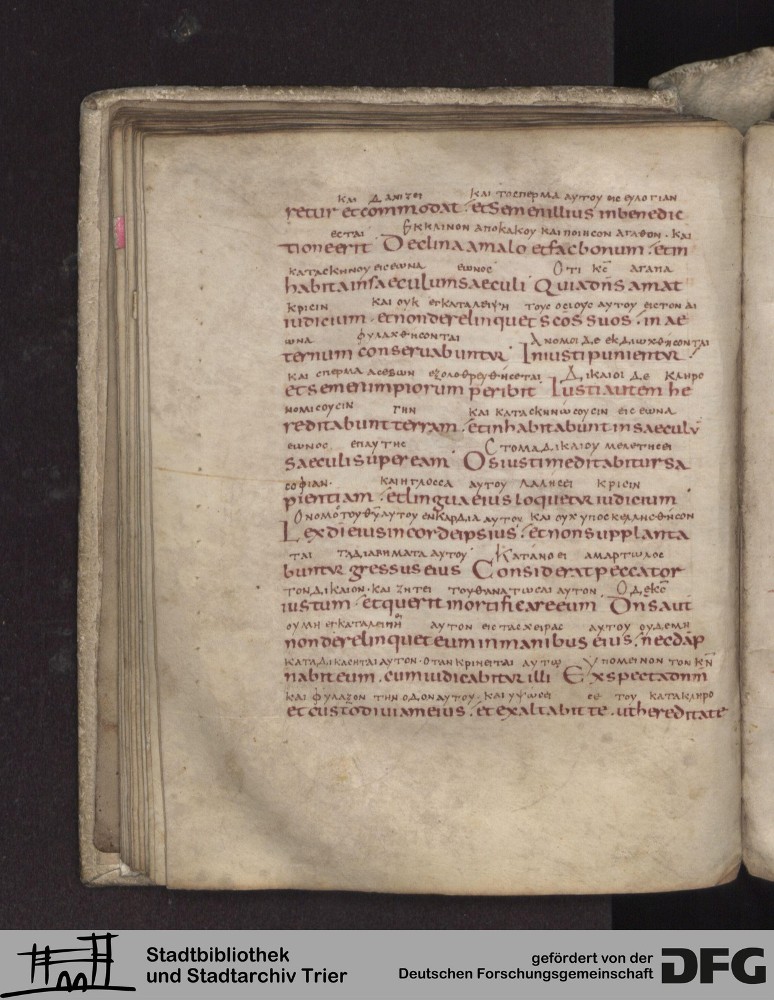 ΚΑΙ ΔΑΝΙΖΕΙ ΚΑΙ ΤΟ ΣΠΕΡΜΑ ΑΥΤΟΥ ΕΙΣ ΕΥΛΟΓΙΑΝ
retur et commodat · et semen illius in benedic
ΕΣΤΑΙ ΕΚΚΛΙΝΟΝ ΑΠΟ ΚΑΚΟΥ ΚΑΙ ΠΟΙΗΣΟΝ ΑΓΑΘΟΝ · ΚΑΙ
tione erit Declina a malo et fac bonum · et in
ΚΑΤΑΣΚΗΝΟΥ ΕΙΣ ΕΩΝΑ ΕΩΝΟΣ ΟΤΙ ΚΣ ΑΓΑΠΑ
habita in saeculum saeculi Quia dn̄s amat
ΚΡΙΣΙΝ ΚΑΙ ΟΥΚ ΕΓΚΑΤΑΛΕΙΨΗ ΤΟΥΣ ΟΣΙΟΥΣ ΑΥΤΟΥ ΕΙΣ ΤΟΝ ΑΙ
iudicium · et non derelinquet sc̄os suos · in ae
ΩΝΑ ΦΥΛΑΧΘΗΣΟΝΤΑΙ ΑΝΟΜΟΙ ΔΕ ΕΚΔΙΩΧΘΗΣΟΝΤΑΙ
ternum conseruabuntur Iniusti punientur ·
ΚΑΙ ΣΠΕΡΜΑ ΑΣΕΒΩΝ ΕΞΟΛΟΘΡΕΥΘΗΣΕΤΑΙ ΔΙΚΑΙΟΙ ΔΕ ΚΛΗΡΟ
et semen impiorum peribit Iusti autem he
ΝΟΜΙΣΟΥΣΙΝ ΓΗΝ ΚΑΙ ΚΑΤΑΣΚΗΝΩΣΟΥΣΙΝ ΕΙΣ ΕΩΝΑ
reditabunt terram · et inhabitabunt in saeculu
ΕΩΝΟΣ ΕΠ ΑΥΤΗΣ ΣΤΟΜΑ ΔΙΚΑΙΟΥ ΜΕΛΕΤΗΣΕΙ
saeculi super eam Os iusti meditabitur sa
ΣΟΦΙΑΝ · ΚΑΙ Η ΓΛΟΣΣΑ ΑΥΤΟΥ ΛΑΛΗΣΕΙ ΚΡΙΣΙΝ
pientiam · et lingua eius loquetur iudicium
Ο ΝΟΜΟΣ ΤΟΥ ΘΥ ΑΥΤΟΥ ΕΝ ΚΑΡΔΙΑ ΑΥΤΟΥ ΚΑΙ ΟΥΧ ΥΠΟΣΚΕΛΛΙΣΘΗΣΟΝ
Lex dī eius in corde ipsius · et non supplanta
ΤΑΙ ΤΑ ΔΙΑΒΗΜΑΤΑ ΑΥΤΟΥ ΚΑΤΑΝΟΕΙ ΑΜΑΡΤΩΛΟΣ
buntur gressus eius Considerat peccator
ΤΟΝ ΔΙΚΑΙΟΝ · ΚΑΙ ΖΗΤΕΙ ΤΟΥ ΘΑΝΑΤΩΣΑΙ ΑΥΤΟΝ Ο ΔΕ ΚΣ
iustum · et querit mortificare eum Dn̄s aut
ΟΥ ΜΗ ΕΓΚΑΤΑΛΕΙΠΗ ΑΥΤΟΝ ΕΙΣ ΤΑΣ ΧΕΙΡΑΣ ΑΥΤΟΥ ΟΥΔΕ ΜΗ
non derelinquet eum in manibus eius · nec dāp
ΚΑΤΑΔΙΚΑΣΗΤΑΙ ΑΥΤΟΝ · ΟΤΑΝ ΚΡΙΝΕΙΤΑΙ ΑΥΤΩ ΥΠΟΜΕΙΝΟΝ ΤΟΝ ΚΝ
nabit eum · cum iudicabitur illi Exspecta dnm
ΚΑΙ ΦΥΛΑΞΟΝ ΤΗΝ ΟΔΟΝ ΑΥΤΟΥ · ΚΑΙ ΥΨΩΣΕΙ ΣΕ ΤΟΥ ΚΑΤΑΚΛΗΡΟ
et custodi uiam eius · et exaltabit te · ut hereditate
Stadtbibliothek
und Stadtarchiv Trier
gefördert von der
Deutschen Forschungsgemeinschaft
DFG